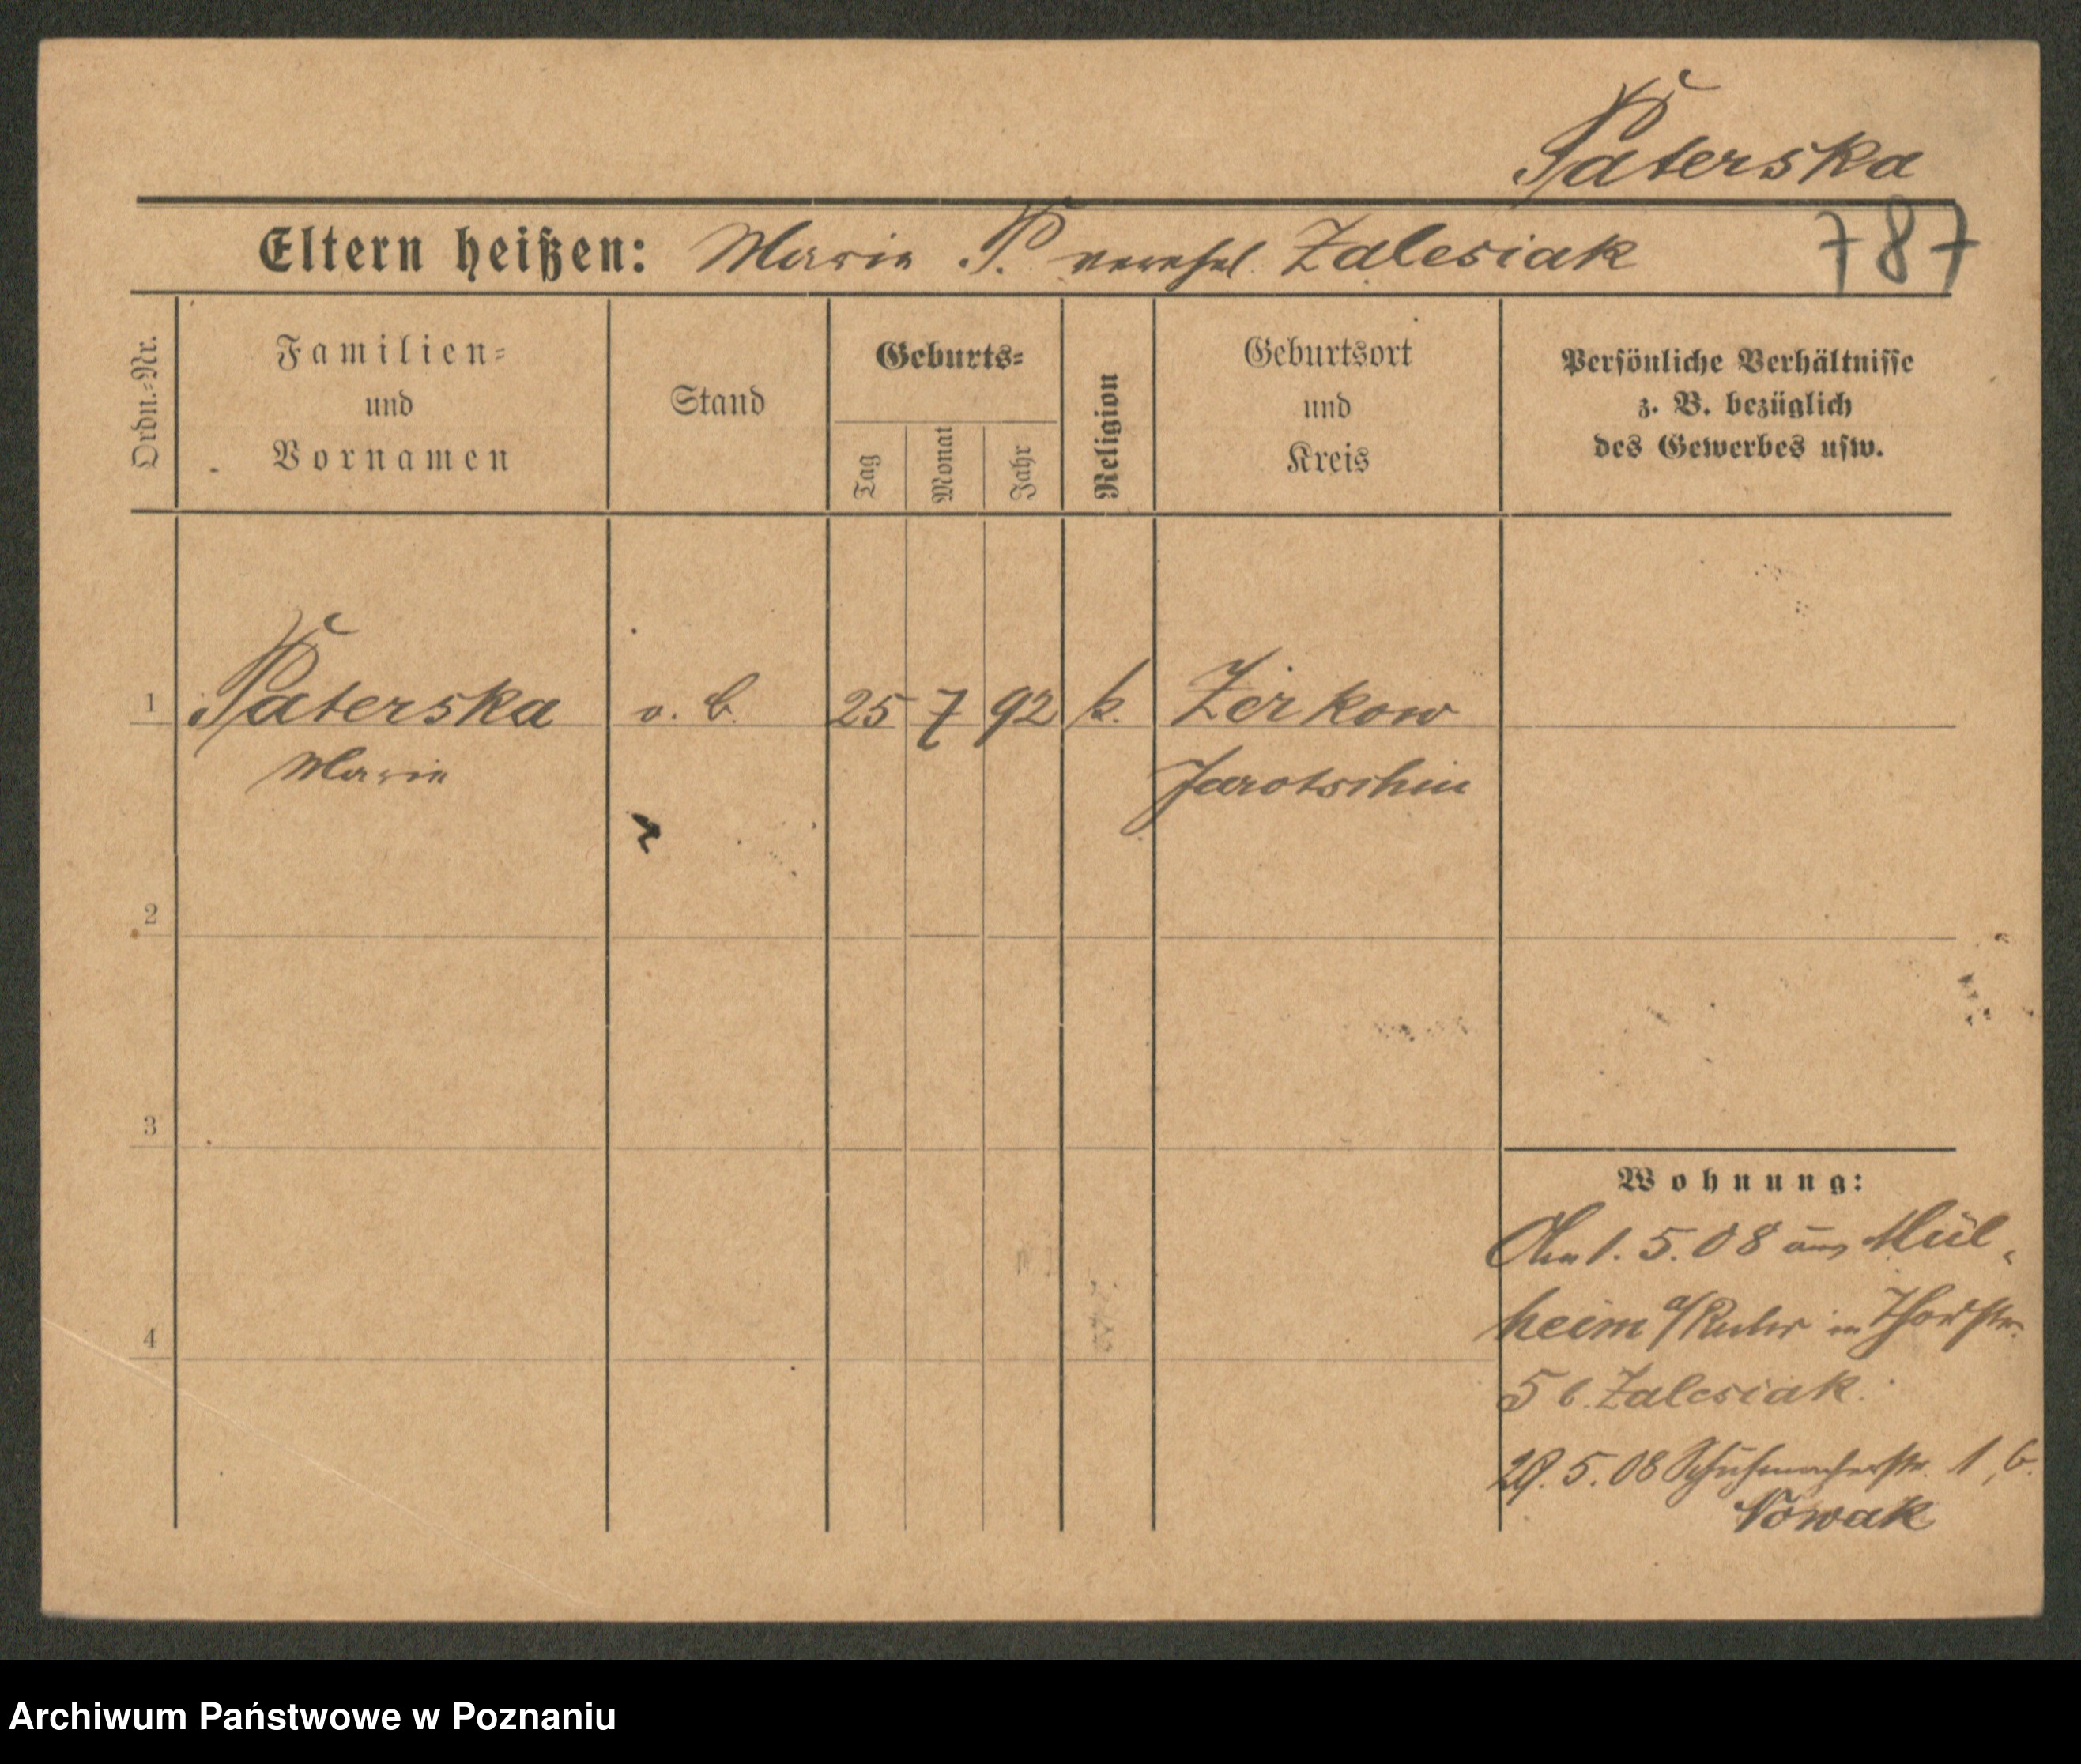 Paterska
787
Eltern heißen: Marie P. verehel. Zalesiak
Ordn.-Nr.
Familien-
und
Vornamen
Stand
Geburts-
Tag
Monat
Jahr
Religion
Geburtsort
und
Kreis
Persönliche Verhältnisse
z. B. bezüglich
des Gewerbes usw.
1 Paterska o. B. 25 7 92 k. Zerkow
Marie Jarotschin
2
3
4
Wohnung:
1. 5. 08 aus Mül-
heim a/Ruhr in Thorstr.
5 b. Zalesiak.
29. 5. 08 Schuhmacherstr. 1, b.
Nowak
Archiwum Państwowe w Poznaniu